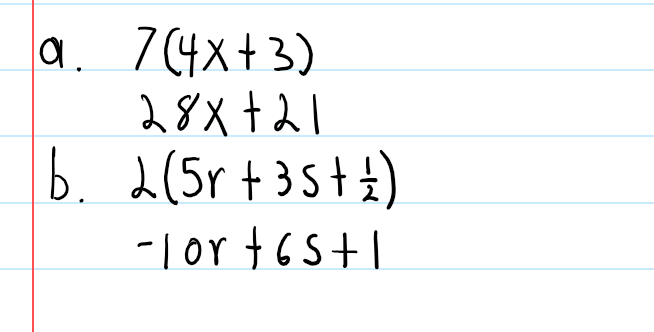 a. 7(4x+3)
28x+21
b. 2(5r+3s+½)
-10r+6s+1